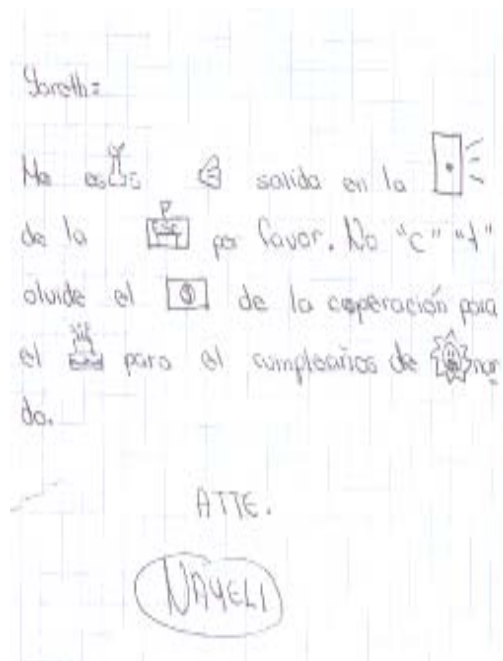 Yareth:
Me es salida en la
de la Esc por favor. No "c" "t"
olvide el de la cooperación para
el para el cumpleaños de nar
do.
ATTE.
NAYELI